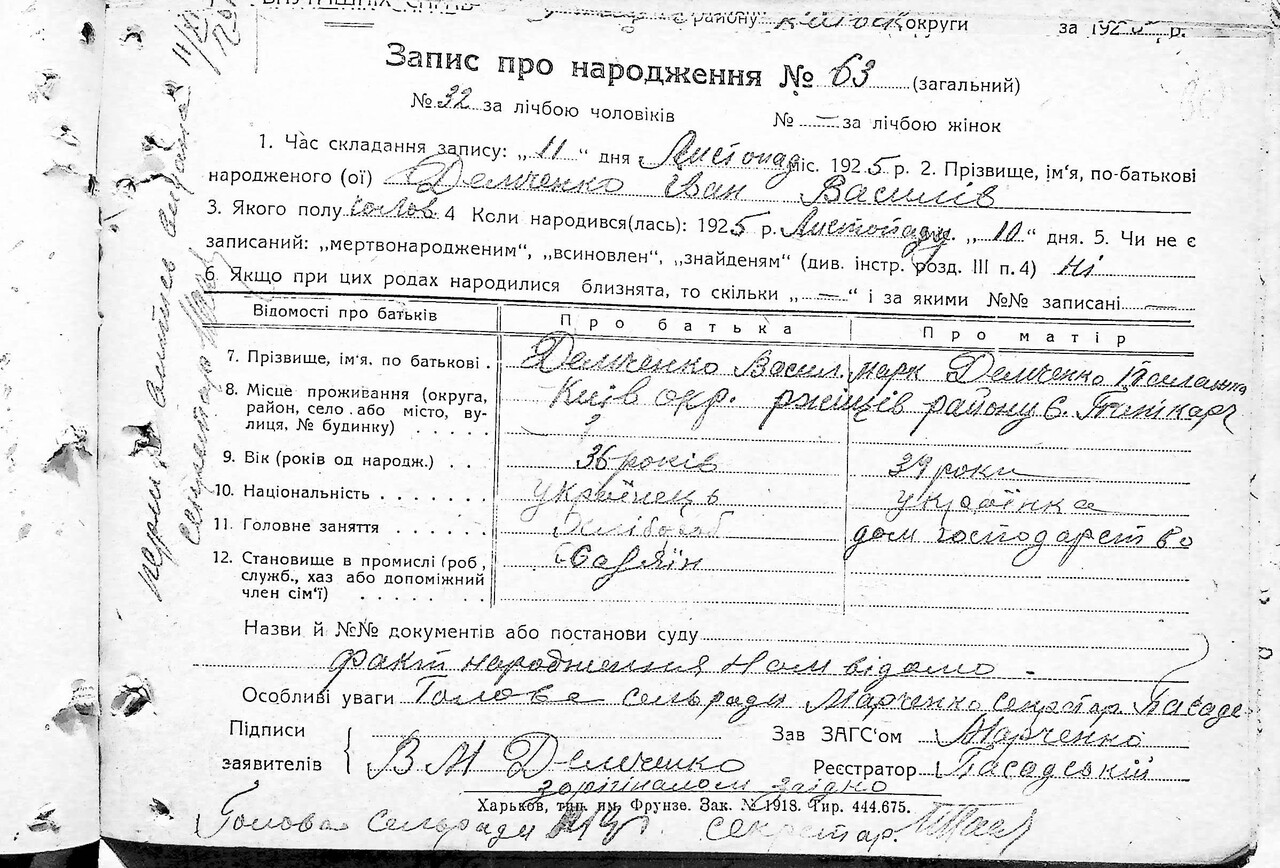 району округи за 1925 р.
Запис про народження № 63 (загальний)
№ 32 за лічбою чоловіків № — за лічбою жінок
1. Час складання запису: „ 11 “ дня Листопад міс. 1925 р. 2. Прізвище, ім'я, по-батькові
народженого (ої) Демченко Іван Василів
3. Якого полу чолов. 4 Коли народився(лась): 1925 р. Листопаду „ 10 “ дня. 5. Чи не є
записаний: „мертвонародженим“, „всиновлен“, „знайденям“ (див. інстр. розд. III п. 4) Ні
6. Якщо при цих родах народилися близнята, то скільки „ — “ і за якими №№ записані —
Відомості про батьків Про батька Про матір
7. Прізвище, ім'я. по батькові . Демченко Васил. марк Демченко
8. Місце проживання (округа, район, село або місто, вулиця, № будинку) Київ окр. ржищів району с.
9. Вік (років од народж.) . . 36 років 39 роки
10. Національність . . . . . . . українець українка
11. Головне заняття . . . . . . Хлібороб дом господарство
12. Становище в промислі (роб, служб., хаз або допоміжний член сім'ї) . . . . . . .
Назви й №№ документів або постанови суду
факт народження Нам відомо
Особливі уваги Голова сельради Марченко секретар
Підписи Зав ЗАГС‘ом Марченко
заявителів В М Демченко Реєстратор Пасадський
з оригіналом згідно
Харьков, тип. им. Фрунзе. Зак. № 1918. Тир. 444.675.
Голова сельради секретар